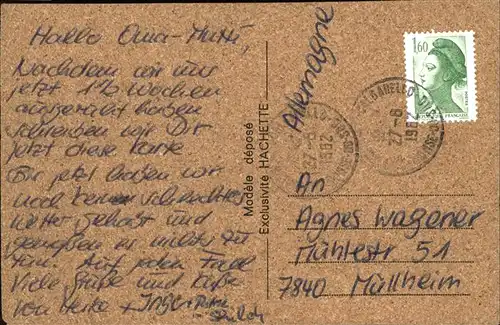 Hallo Oma-Mutti,
Nachdem wir uns
jetzt 1½ Wochen
ausgeruht haben
schreiben wir Dir
jetzt diese Karte
Bis jetzt haben wir
noch kein schlechtes
Wetter gehabt und
genießen es nichts zu
tun. Auf jeden Fall
Viele Grüße und Küße
von Heike + Inge +
Modèle déposé
Exclusivité HACHETTE
Allemagne
1,60
27-8
1982
An
Agnes Wagener
Mühlestr 51
7840 Müllheim